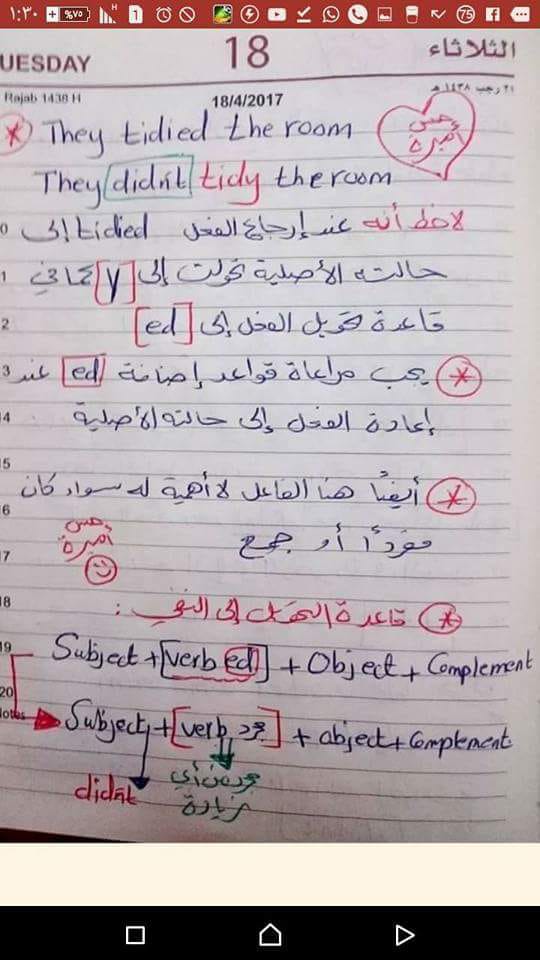 ١:٣٠ %٧٥ H 1 75
UESDAY 18 الثلاثاء
Rajab 1438 H 18/4/2017 ٢١ رجب ١٤٣٨ هـ
They tidied the room
أميرة
They didn't tidy the room
لاحظ أنه عند إرجاع الفعل tidied إلى
حالته الأصلية تحولت إلى [y] كما في
قاعدة تحويل الفعل إلى [ed]
يجب مراعاة قواعد إضافة [ed] عند
إعادة الفعل إلى حالته الأصلية
أيضًا هنا الفاعل لا أهمية له سواء كان
مفردًا أو جمع
أميرة
قاعدة التحويل إلى النفي :
Subject + [verb ed] + Object + Complement
Subject + [verb مجرد] + abject + Complement
didn't
مجرد من أي
زيادة
0
1
2
3
4
5
6
7
8
19
20
Notes